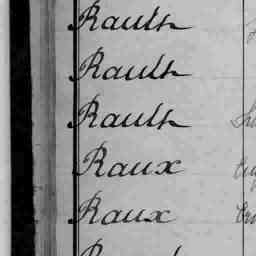 Rault
Rault
Rault
Raux
Raux